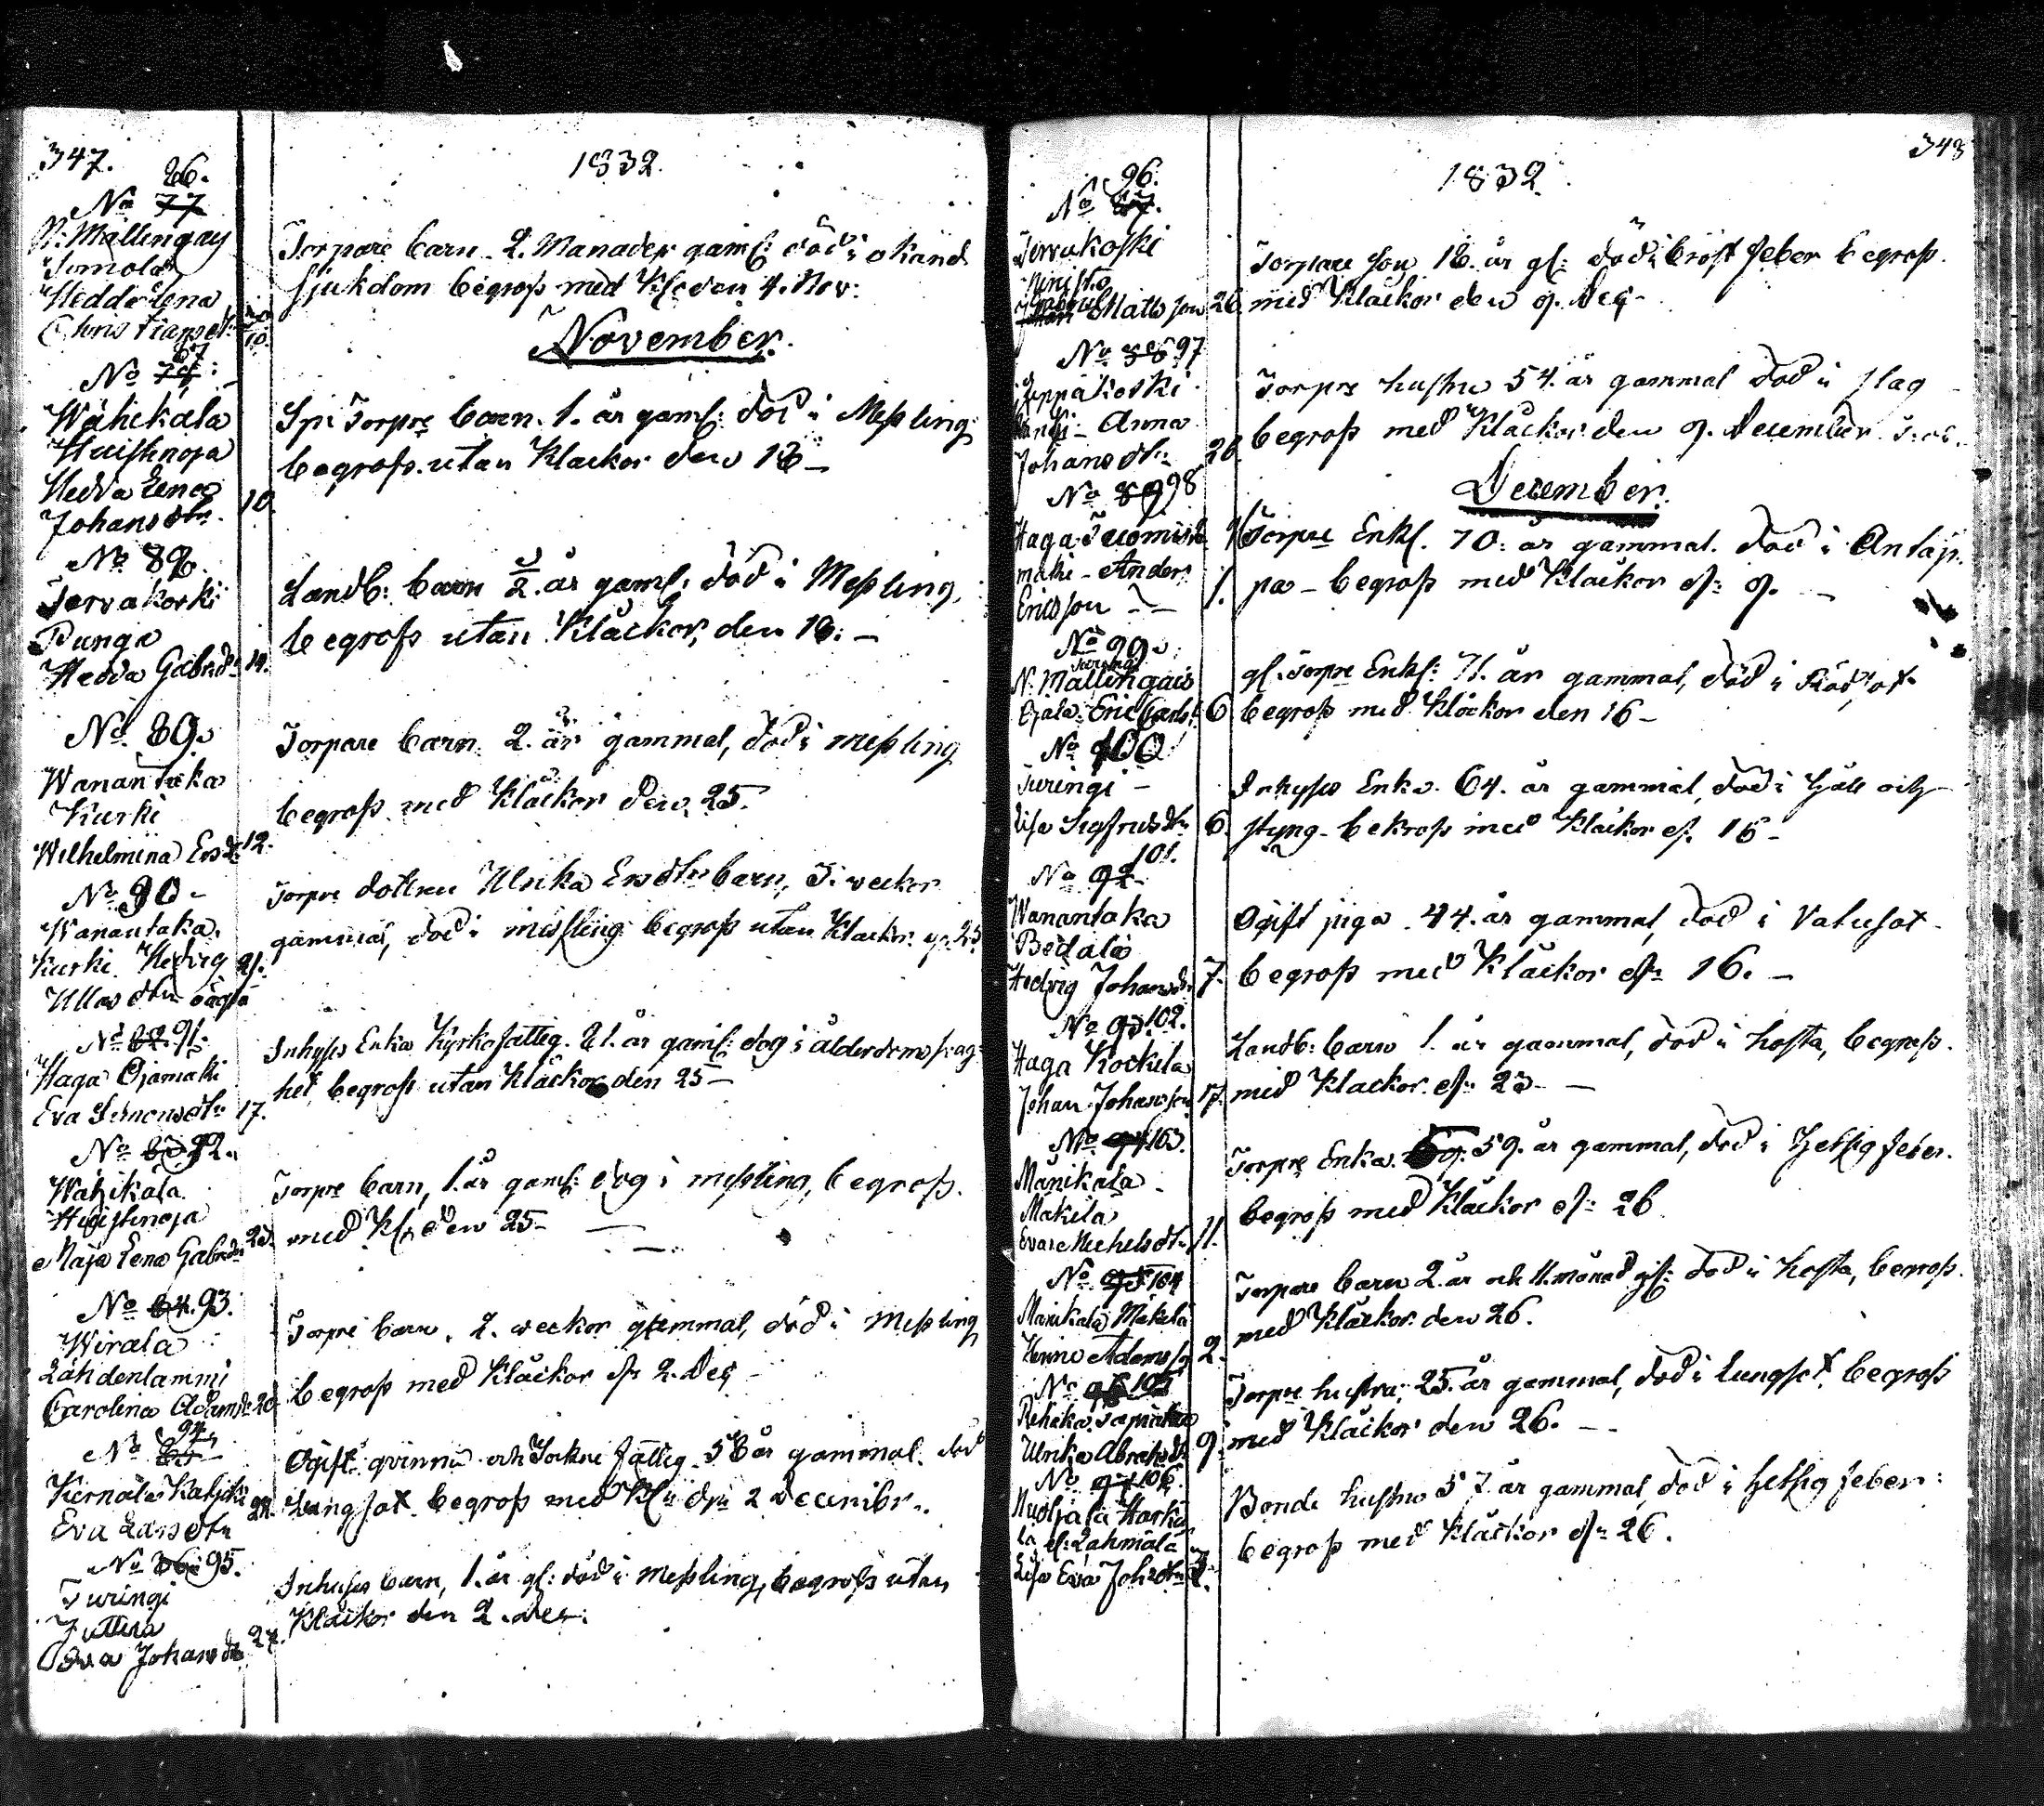 347.
1832.
86.
No 77
N: Mällingay
Jomola
Hedda Lena
Christiansdr
10.
Torpare barn 2. Månader gaml: död i okänd
sjukdom begrofs med Kl: den 4. Nov:
November.
87
No
Wähikala
Huishnoja
Hedda Lena
Johansdtr. 10.
Torpre barn. 1. år gaml: död i Messling
begrofs utan Klackor den 18 –
No 88.
Torvakoski
Punga
Hedda Gabrdr 14.
Landb: barn 3/2. år gaml: död i Messling,
begrofs utan Klåckor, den 18. –
No 89.
Wanantaka
Kurki
Wilhelmina Ersdr 12.
Torpare barn. 2. år gammal, död i messling
begrofs med Klåckor den 25.
No 90 –
Wanantaka.
Kurki Hedvig 21.
Ullas dtr
Torpre dottren Ulrika Ersdtr barn, 3. veckor
gammal, död i missling begrofs utan Klackor 25
No 91.
Haga Ojamäki
Eva Simonsdtr 17.
Inhyses Enka Kyrkofattig. 81. år gaml: dog i ålderdoms svag
het, begrofs utan Klåckor den 25 –
No 92.
Wähikala
Huishnoja
Maja Lena Gabrdr 23.
Torpre barn, 1. år gaml: dog i messling, begrofs.
med Kl. den 25 –
No 84. 93.
Wirala
Lähdenlammi
Carolina Adamsdr 20.
Torpre barn, 2. weckor gammal, död i Messling
begrofs med Klåckor d. 2. Dec –
94
No 85
Kernala Katjoki
Eva Larsdtr 24.
Ogift qvinna och Socken fattig 58 år gammal. död
i Lungsot begrofs med Kl: den 2 Decembr.
No 86 95.
Turingi
Juttila
Eva Johansdtr 27.
Inhyses barn, 1. år gl: död i messling, begrofs utan
Klåckor den 2. Dec.
348
1832.
96.
No 87.
Torvakoski
Ninistö
Mattsson 26.
Torpare son 18. år gl: död i bröst feber begrofs.
med Klåckor den 9. Dec –
No 88 97
Leppäkoski
Anna
Johansdtr 28.
Torpre hustru 54. år gammal död i slag
begrofs med Klåckor den 9. December
December.
No 89 98
Haga Tuomis
mäki – Anders
Ericsson – 1.
Torpre Enkl. 70. år gammal. död i Antäp.
pa – begrofs med Klåckor d: 9. –
No 99.
Turingi
N. Mällingais
Ojala Eric Carls. 6
gl. Torpre Enkl: 71. år gammal, död i Rödsot
begrofs med Klåckor den 16 –
No 100
Turingi –
Lisa Sigfridsdtr 6.
Inhyses Enka. 64. år gammal, död i håll och
styng – bekrofs med Klåckor d. 16 –
101.
No 92
Wanantaka
Bödala
Hedvig Johansdr 7.
Ogift piga 44. år gammal, död i Vatusot –
begrofs med Klåckor d: 16. –
No 93 102.
Haga Kockila
Johan Johansson 17.
Landb: barn 1. år gammal, död i hosta, begrofs.
med Klackor d: 23 –
No 94 103.
Mänikala –
Mäkilä
Eva Michelsdtr 11.
Torpre Enka. 59. år gammal, död i hetsig feber.
begrofs med Klåckor d: 26
No 95 104
Mänikala Mäkilä
Henric Adamsson 2.
Torpare barn 2. år och 11. månad gl: död i hosta, begrofs.
med Klåckor den 26.
No 96 105
Rehakka
Ulrika Abrahsdr 9.
Torpre hustru, 25. år gammal, död i lungsot, begrofs
med Klåckor den 26. –
No 97 106.
Nuoljala Harki
la el: Lahmala
Lisa Eva Johsdtr 7.
Bonde hustru 57 år gammal, död i hetsig feber:
begrofs med Klåckor d: 26.